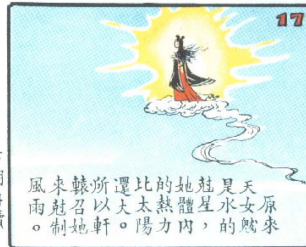 17
原來
天女魃
是水的
尅星，
她體內
的熱力
比太陽
還大。
所以軒
轅召她
來尅制
風雨。